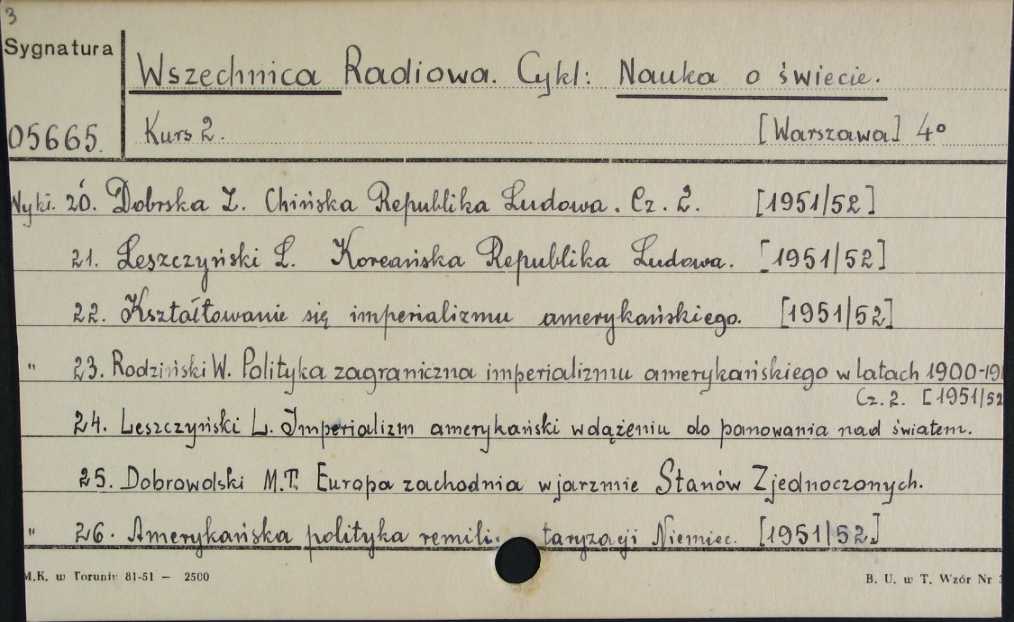 3
Sygnatura
Wszechnica Radiowa. Cykl: Nauka o świecie.
05665. Kurs 2. [Warszawa] 4°
Wykł. 20. Dobrska Z. Chińska Republika Ludowa. Cz. 2. [1951/52]
21. Leszczyński L. Koreańska Republika Ludowa. [1951/52]
22. Kształtowanie się imperializmu amerykańskiego. [1951/52]
" 23. Rodziński W. Polityka zagraniczna imperializmu amerykańskiego w latach 1900-19
Cz. 2. [1951/52
24. Leszczyński L. Imperializm amerykański w dążeniu do panowania nad światem.
25. Dobrowolski M.T. Europa zachodnia w jarzmie Stanów Zjednoczonych.
" 26. Amerykańska polityka remili- taryzacji Niemiec. [1951/52]
M.K. w Toruniu 81-51 — 2500 B. U. w T. Wzór Nr